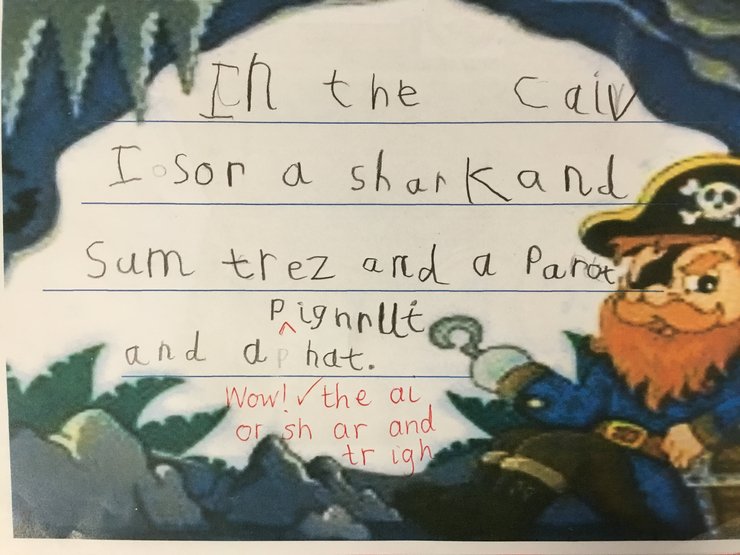 In the caiv
I sor a shark and
Sum trez and a Parot
Pignrut
and a hat.
Wow! ✓ the ai
or sh ar and
tr igh